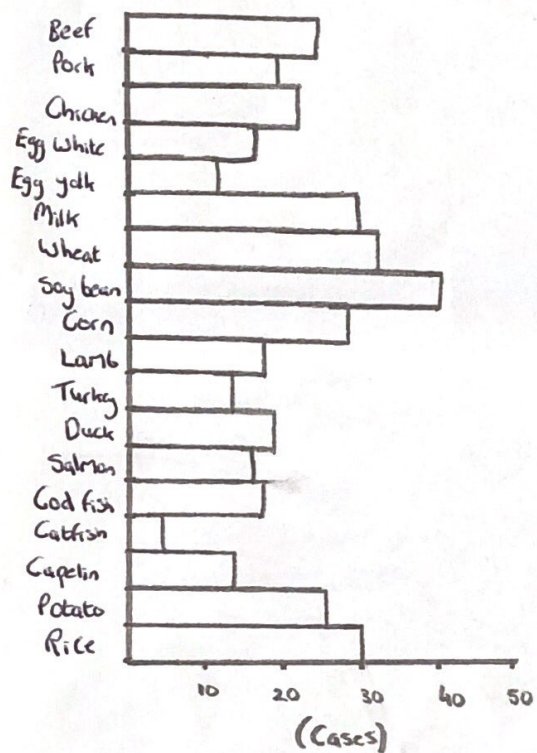 Beef
Pork
Chicken
Egg white
Egg yolk
Milk
Wheat
Soy bean
Corn
Lamb
Turky
Duck
Salmon
Cod fish
Catfish
Capelin
Potato
Rice
10 20 30 40 50
(Cases)